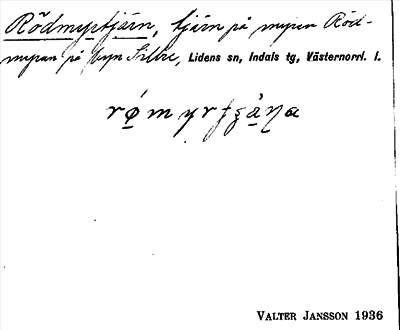 Rödmyrtjärn, tjärn på myren Röd-
myran på byn Sillre, Lidens sn, Indals tg, Västernorrl. l.
VALTER JANSSON 1936